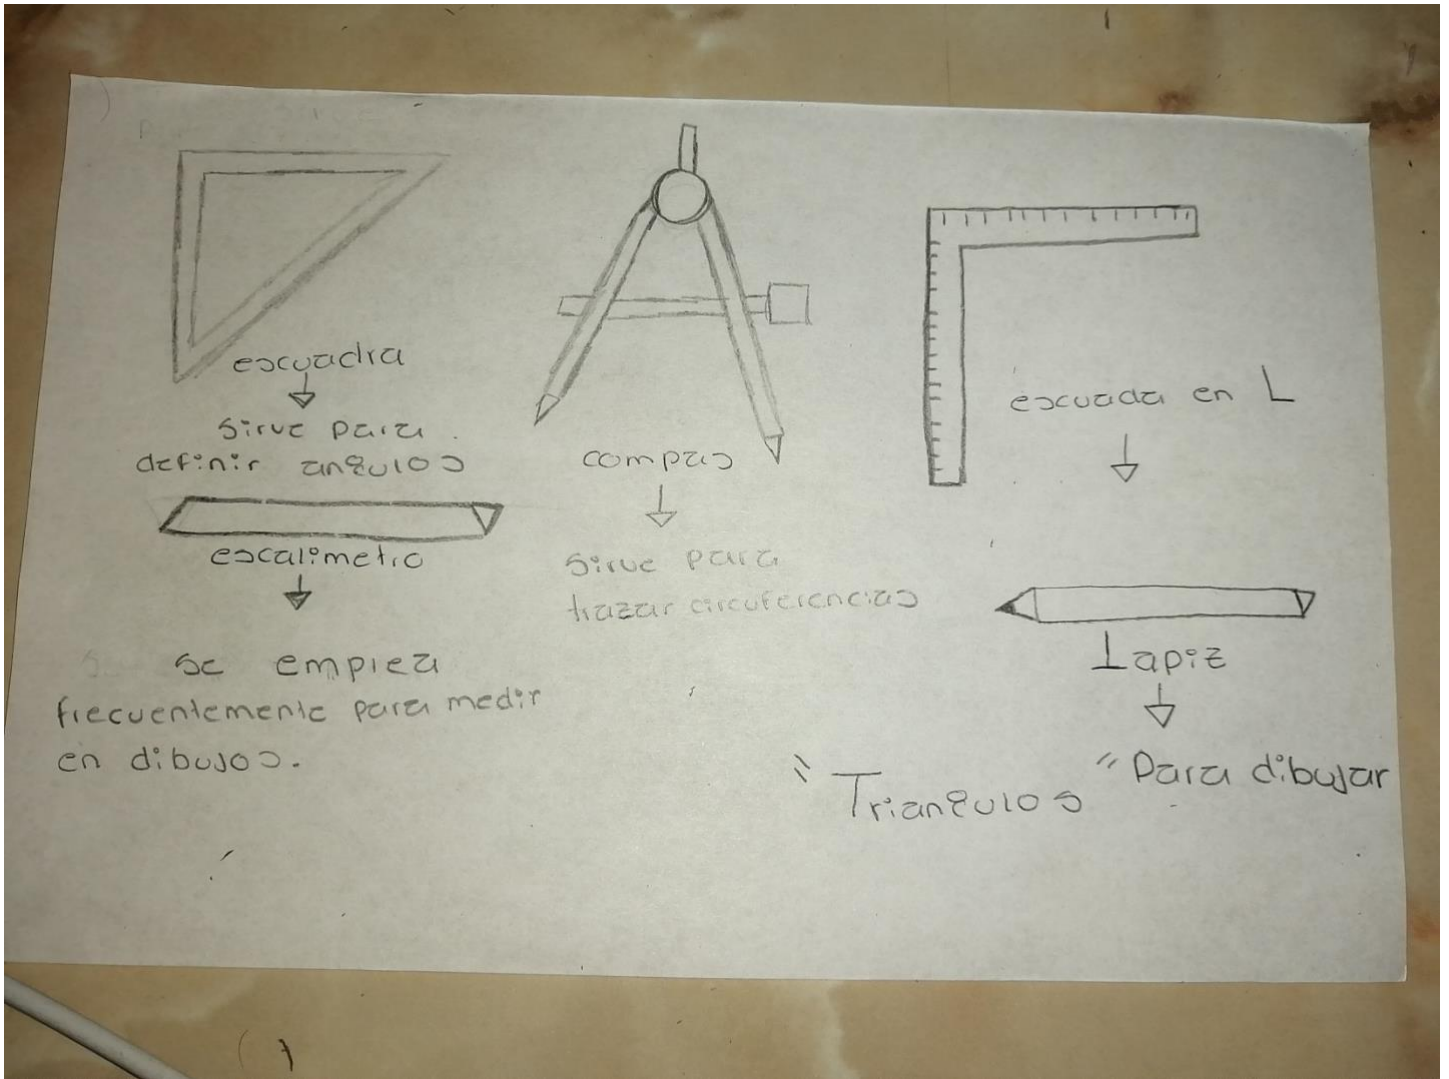 escuadra
sirve para
definir angulos
escalimetro
se empieza
frecuentemente para medir
en dibujos.
compas
sirve para
trazar circuferencias
escuada en L
Lapiz
"Para dibujar
Triangulos"